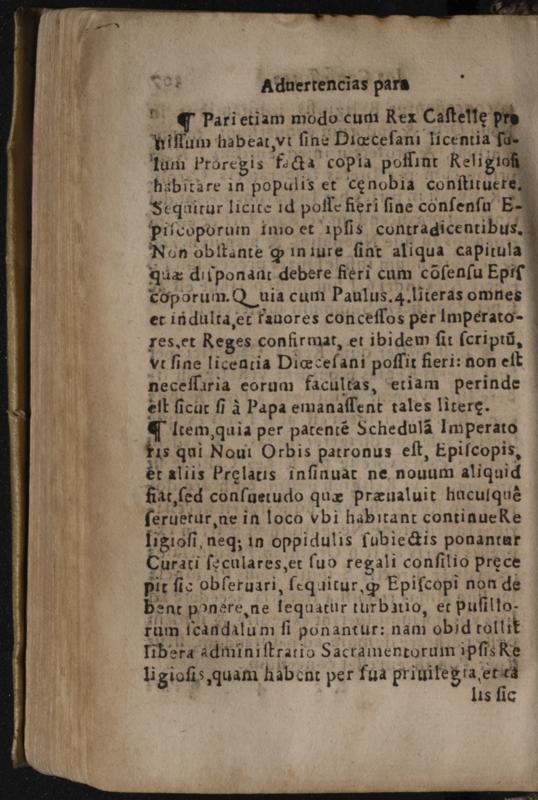 Aduertencias para
¶ Pari etiam modo cum Rex Castellę pro
uissum habeat, vt sine Diœcesani licentia so-
lum Proregis facta copia possint Religiosi
habitare in populis et cęnobia constituere.
Sequitur licite id posse fieri sine consensu E-
piscoporum imo et ipsis contradicentibus.
Non obstante ꝙ in iure sint aliqua capitula
quæ disponant debere fieri cum cōsensu Epis
coporum. Quia cum Paulus.4. literas omnes
et indulta, et fauores concessos per Imperato-
res, et Reges confirmat, et ibidem sit scriptū,
vt sine licentia Diœcesani possit fieri: non est
necessaria eorum facultas, etiam perinde
est sicut si à Papa emanassent tales literę.
¶ Item, quia per patentē Schedulā Imperato
ris qui Noui Orbis patronus est, Episcopis,
et aliis Pręlatis insinuat ne nouum aliquid
fiat, sed consuetudo quæ præualuit hucusquē
seruetur, ne in loco vbi habitant continue Re
ligiosi, neq; in oppidulis subiectis ponantur
Curati sęculares, et suo regali consilio pręce
pit sic obseruari, sequitur, ꝙ Episcopi non de
bent ponere, ne sequatur turbatio, et pusillo-
rum scandalum si ponantur: nam obid tollit
libera administratio Sacramentorum ipsis Re
ligiosis, quam habent per sua priuilegia, et ta
lis sic